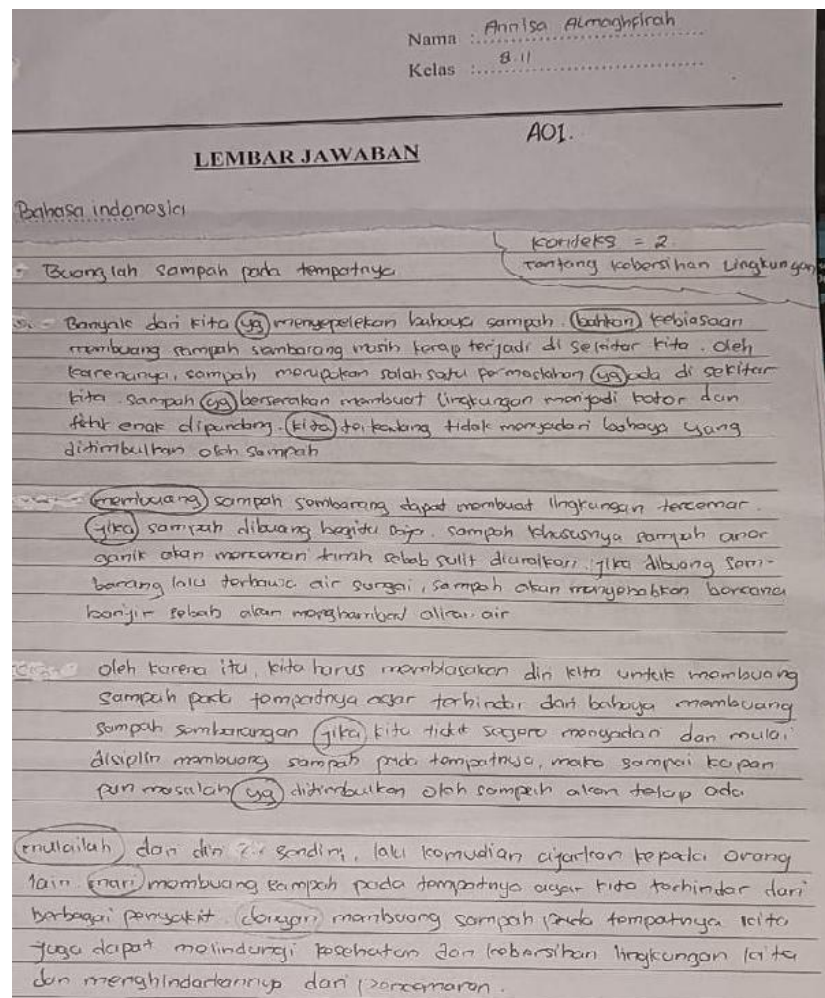 Nama : Annisa Almaghfirah
Kelas : 8.11
A01.
LEMBAR JAWABAN
Bahasa indonesia
konteks = 2.
Tentang kebersihan Lingkungan
- Buanglah sampah pada tempatnya
- Banyak dari kita yg menyepelekan bahaya sampah. bahkan kebiasaan
membuang sampah sembarang masih kerap terjadi di sekitar kita. Oleh
karenanya, sampah merupakan salah satu permaslahan yg ada di sekitar
kita. Sampah yg berserakan membuat lingkungan menjadi kotor dan
tidak enak dipandang. kita terkadang tidak menyadari bahaya yang
ditimbulkan oleh sampah
- membuang sampah sembarang dapat membuat lingkungan tercemar.
jika sampah dibuang begitu saja. Sampah khususnya sampah anor
ganik akan mencemari tanah sebab sulit diuraikan. jika dibuang sem-
barang lalu terbawa air sungai, sampah akan menyebabkan bencana
banjir sebab akan menghambat aliran air
oleh karena itu, kita harus membiasakan diri kita untuk membuang
sampah pada tempatnya agar terhindar dari bahaya membuang
sampah sembarangan jika kita tidak segera menyadari dan mulai
disiplin membuang sampah pada tempatnya, maka sampai kapan
pun masalah yg ditimbulkan oleh sampah akan tetap ada
mulailah dari diri sendiri, lalu kemudian ajarkan kepada orang
lain. mari membuang sampah pada tempatnya agar kita terhindar dari
berbagai penyakit. dengan membuang sampah pada tempatnya kita
juga dapat melindungi kesehatan dan kebersihan lingkungan kita
dan menghindarkannya dari pencemaran.